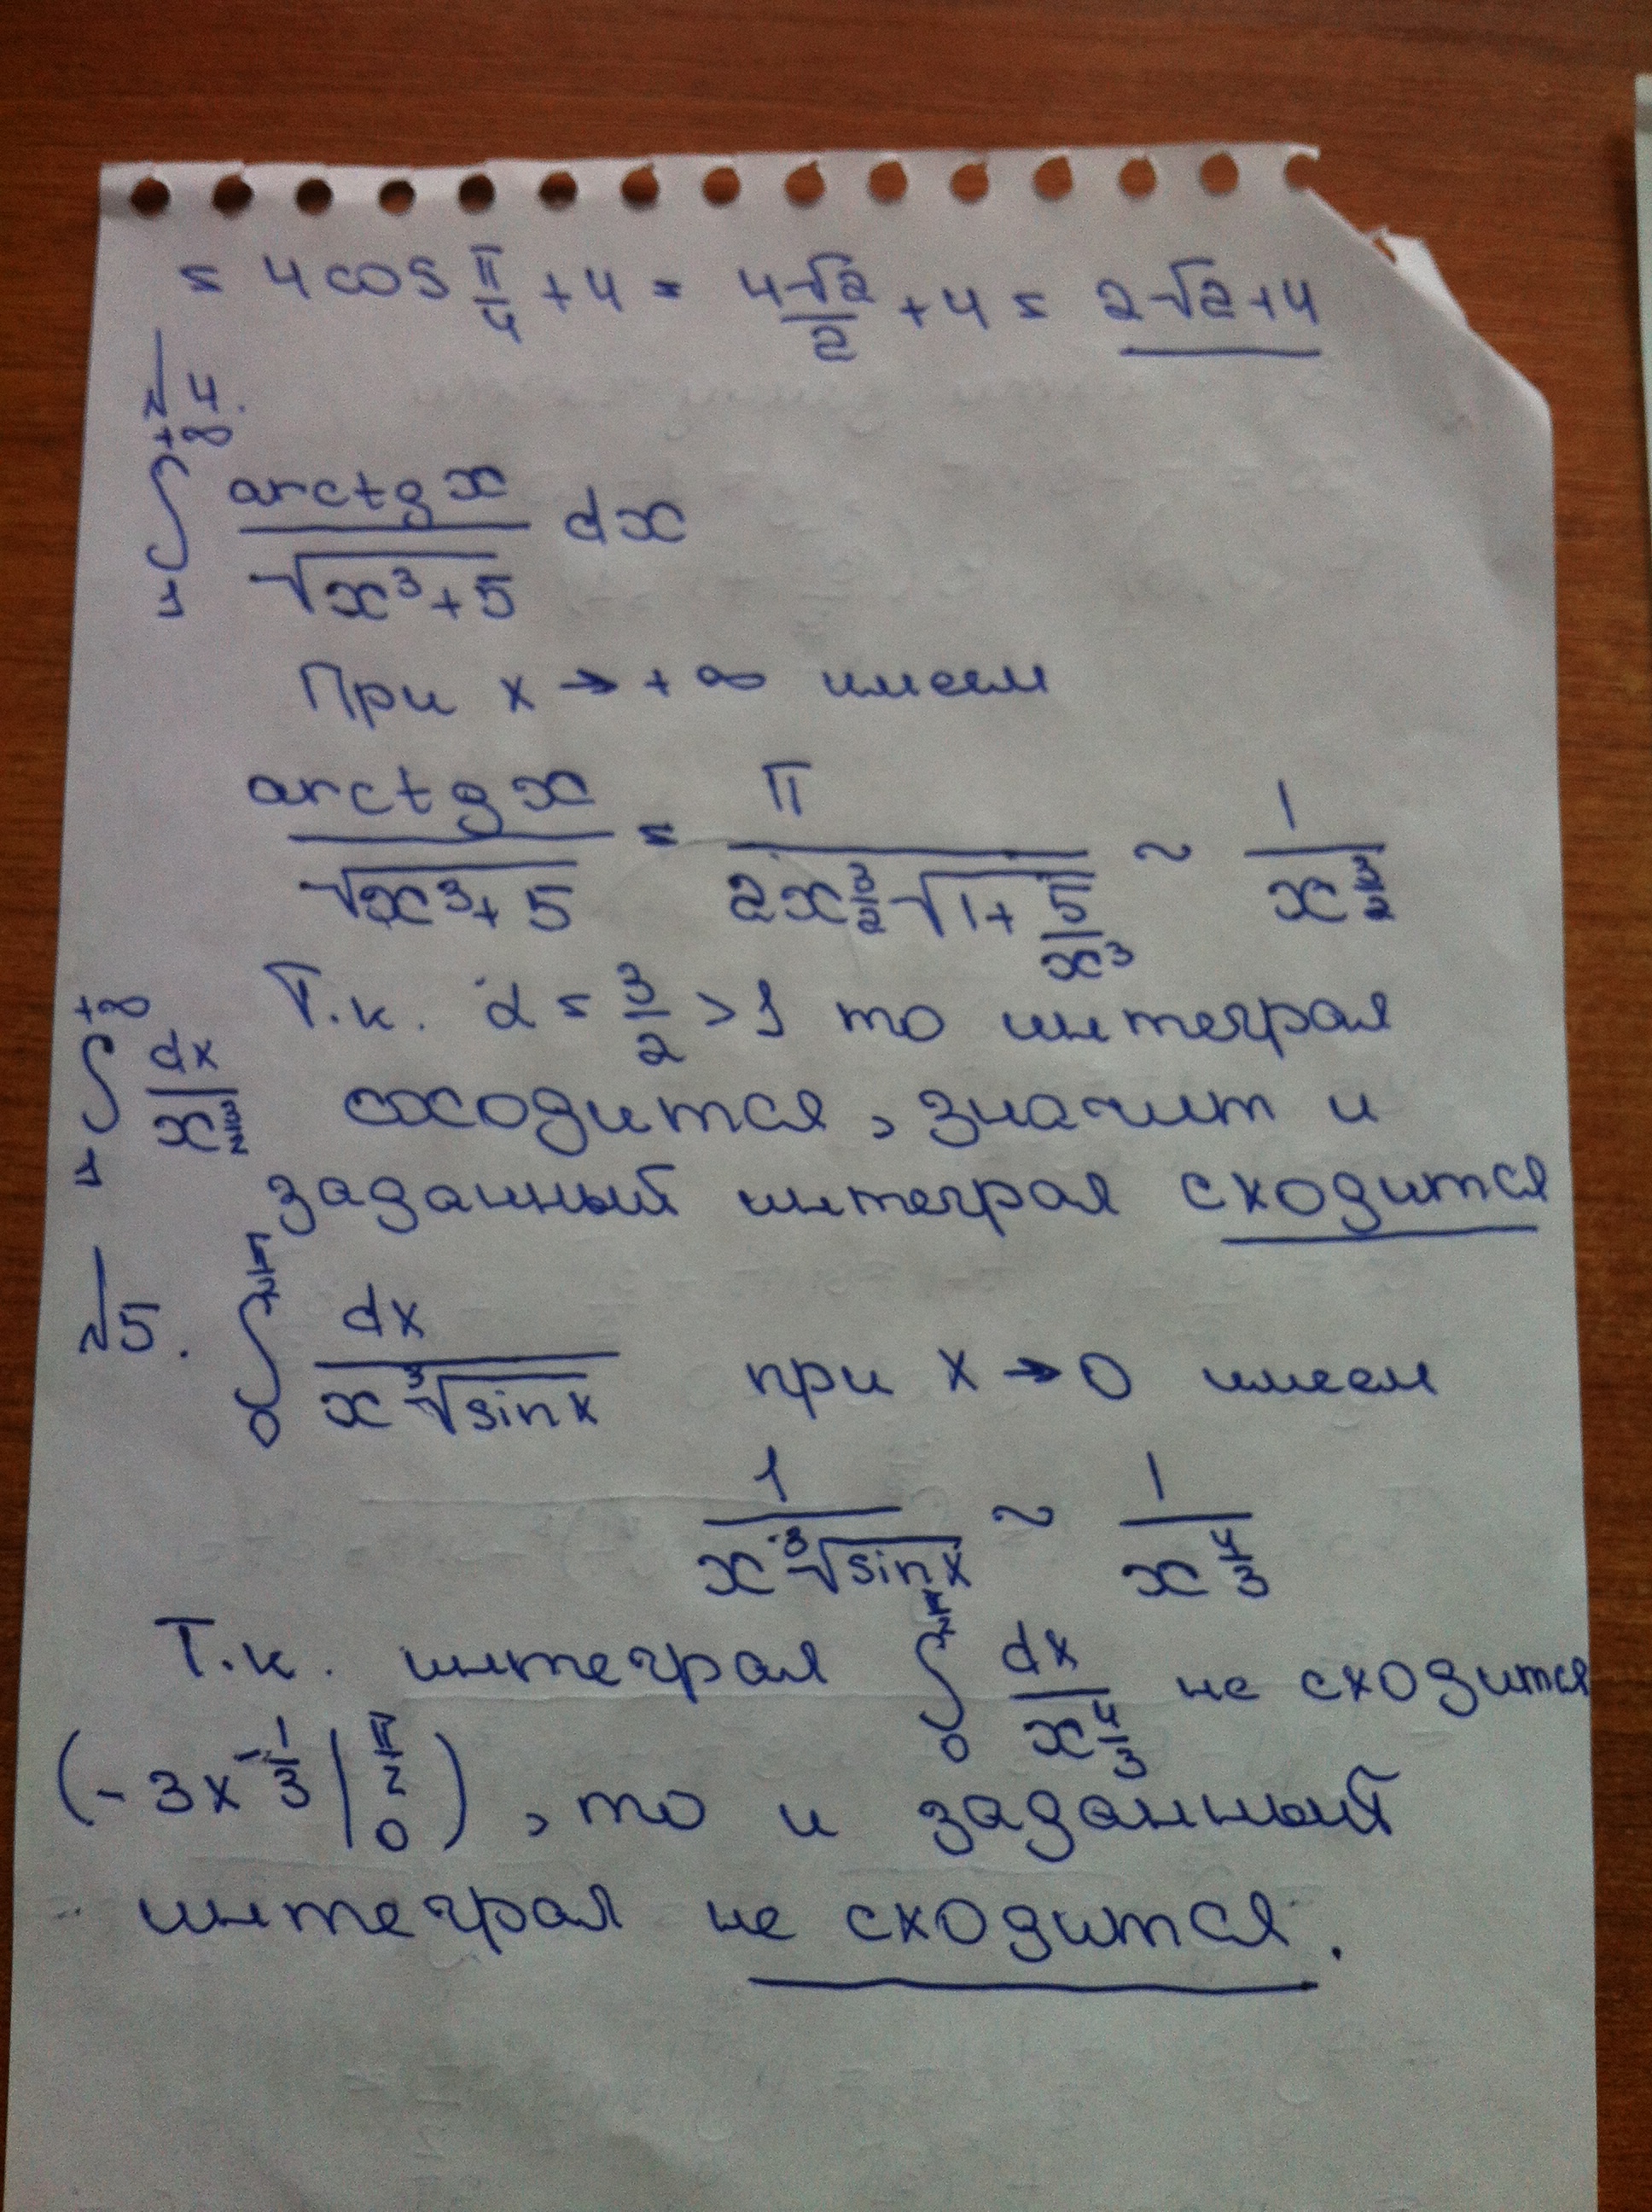 = 4 cos π/4 + 4 = 4√2/2 + 4 = 2√2 + 4
№4.
∫₁^{+∞} arctg x / √(x³+5) dx
При x → +∞ имеем
arctg x / √(x³+5) = π / (2x^{3/2} √(1 + 5/x³)) ~ 1 / x^{3/2}
Т.к. α = 3/2 > 1 то интеграл
∫₁^{+∞} dx / x^{3/2} сходится, значит и
заданный интеграл сходится
№5. ∫₀^{π/2} dx / (x ∛(sin x)) при x → 0 имеем
1 / (x ∛(sin x)) ~ 1 / x^{4/3}
Т.к. интеграл ∫₀^{π/2} dx / x^{4/3} не сходится
(-3x^{-1/3} |₀^{π/2}), то и заданный
интеграл не сходится.